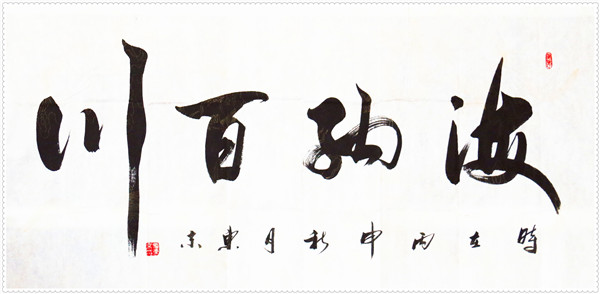 海納百川
時在丙申秋月東